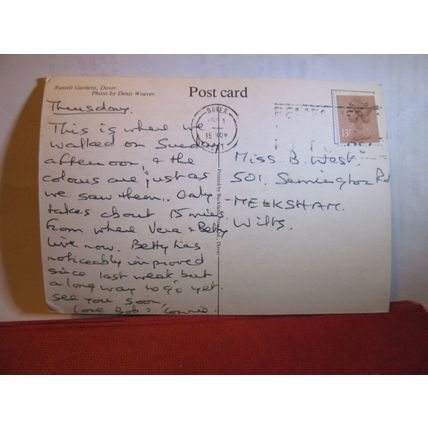 Russell Gardens, Dover.
Photo by Denis Weaver.
Post card
Thursday.
This is where we
walked on Sunday
afternoon, & the
colours are just as
we saw them. Only
takes about 15 mins
from where Vera & Betty
live now. Betty has
noticeably improved
since last week but
a long way to go yet.
See you soon,
Love Bob & Connie.
DOVER
15 NOV
13
Miss. B. West.
501, Semington Rd
MELKSHAM.
Wilts.
Printed by Buckland
Dover